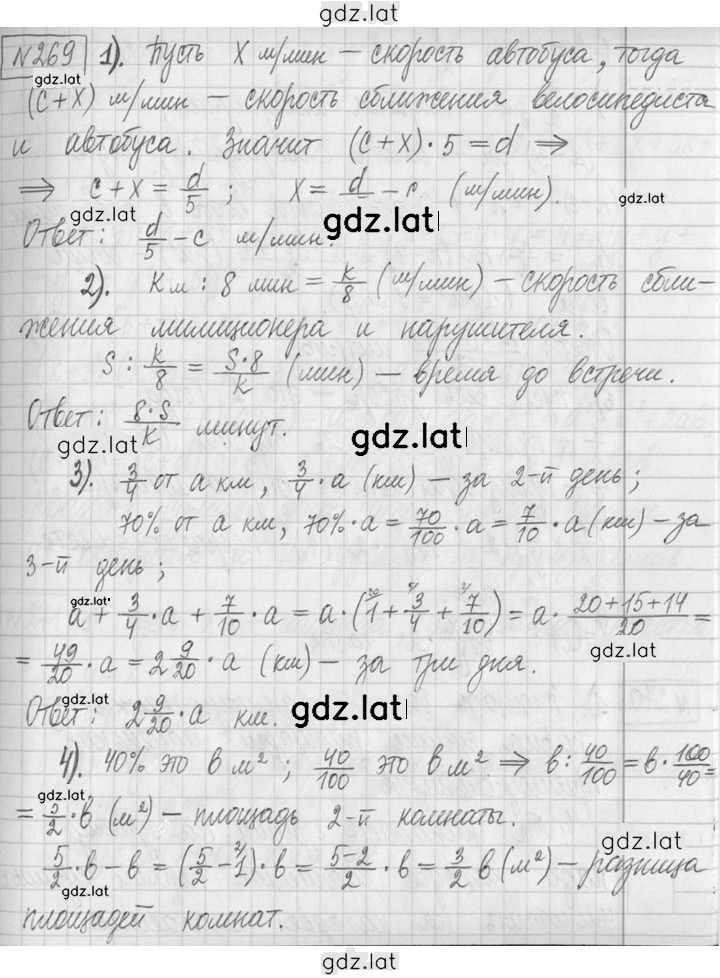 gdz.lat
№269 1). Пусть x м/мин – скорость автобуса, тогда
gdz.lat
(c+x) м/мин – скорость сближения велосипедиста
и автобуса. Значит (c+x)·5=d ⇒
⇒ c+x = d/5 ; x = d/5 – c (м/мин).
gdz.lat
gdz.lat
Ответ: d/5 – c м/мин.
2). K м : 8 мин = k/8 (м/мин) – скорость сбли-
жения милиционера и нарушителя.
S : k/8 = S·8/k (мин) – время до встречи.
Ответ: 8·S/k минут.
gdz.lat
gdz.lat
3). 3/4 от a км, 3/4·a (км) – за 2-й день;
70% от a км, 70%·a = 70/100·a = 7/10·a (км) – за
3-й день;
gdz.lat
a + 3/4·a + 7/10·a = a·(1 + 3/4 + 7/10) = a· 20+15+14/20 =
= 49/20·a = 2 9/20·a (км) – за три дня.
gdz.lat
Ответ: 2 9/20·a км.
gdz.lat
4). 40% это в м²; 40/100 это в м² ⇒ в: 40/100 = в· 100/40 =
gdz.lat
= 5/2·в (м²) – площадь 2-й комнаты.
gdz.lat
5/2·в – в = (5/2 – 1)·в = 5-2/2·в = 3/2 в (м²) – разница
площадей комнат.
gdz.lat